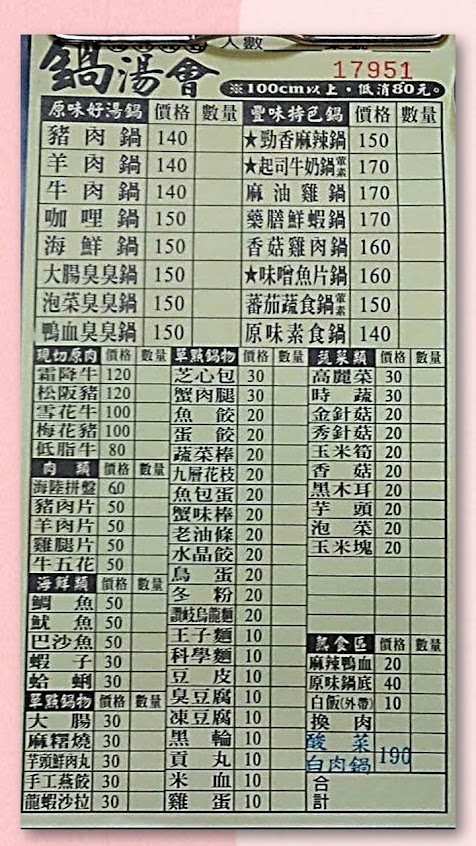 人數
17951
鍋湯會
※100cm以上,低消80元。
原味好湯鍋 價格 數量
豬肉鍋 140
羊肉鍋 140
牛肉鍋 140
咖哩鍋 150
海鮮鍋 150
大腸臭臭鍋 150
泡菜臭臭鍋 150
鴨血臭臭鍋 150
豐味特色鍋 價格 數量
★勁香麻辣鍋 150
★起司牛奶鍋葷素 170
麻油雞鍋 170
藥膳鮮蝦鍋 170
香菇雞肉鍋 160
★味噌魚片鍋 160
蕃茄蔬食鍋葷素 150
原味素食鍋 140
現切原肉 價格 數量
霜降牛 120
松阪豬 120
雪花牛 100
梅花豬 100
低脂牛 80
肉類 價格 數量
海陸拼盤 60
豬肉片 50
羊肉片 50
雞腿片 50
牛五花 50
海鮮類 價格 數量
鯛魚 50
魷魚 50
巴沙魚 50
蝦子 30
蛤蜊 30
單點鍋物 價格 數量
大腸 30
麻糬燒 30
芋頭鮮肉丸 30
手工燕餃 30
龍蝦沙拉 30
單點鍋物 價格 數量
芝心包 30
蟹肉腿 30
魚餃 20
蛋餃 20
蔬菜棒 20
九層花枝 20
魚包蛋 20
蟹味棒 20
老油條 20
水晶餃 20
鳥蛋 20
冬粉 20
讚岐烏龍麵 20
王子麵 10
科學麵 10
豆皮 10
臭豆腐 10
凍豆腐 10
黑輪 10
貢丸 10
米血 10
雞蛋 10
蔬菜類 價格 數量
高麗菜 30
時蔬 30
金針菇 20
秀針菇 20
玉米筍 20
香菇 20
黑木耳 20
芋頭 20
泡菜 20
玉米塊 20
熟食區 價格 數量
麻辣鴨血 20
原味鍋底 40
白飯(外帶) 10
換肉
酸菜
白肉鍋 190
合計